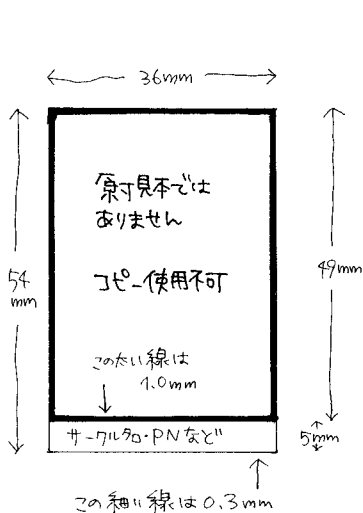 36mm
54
mm
49mm
原寸見本では
ありません
コピー使用不可
この太い線は
1.0mm
サークル名・PNなど
5mm
この細い線は0.3mm